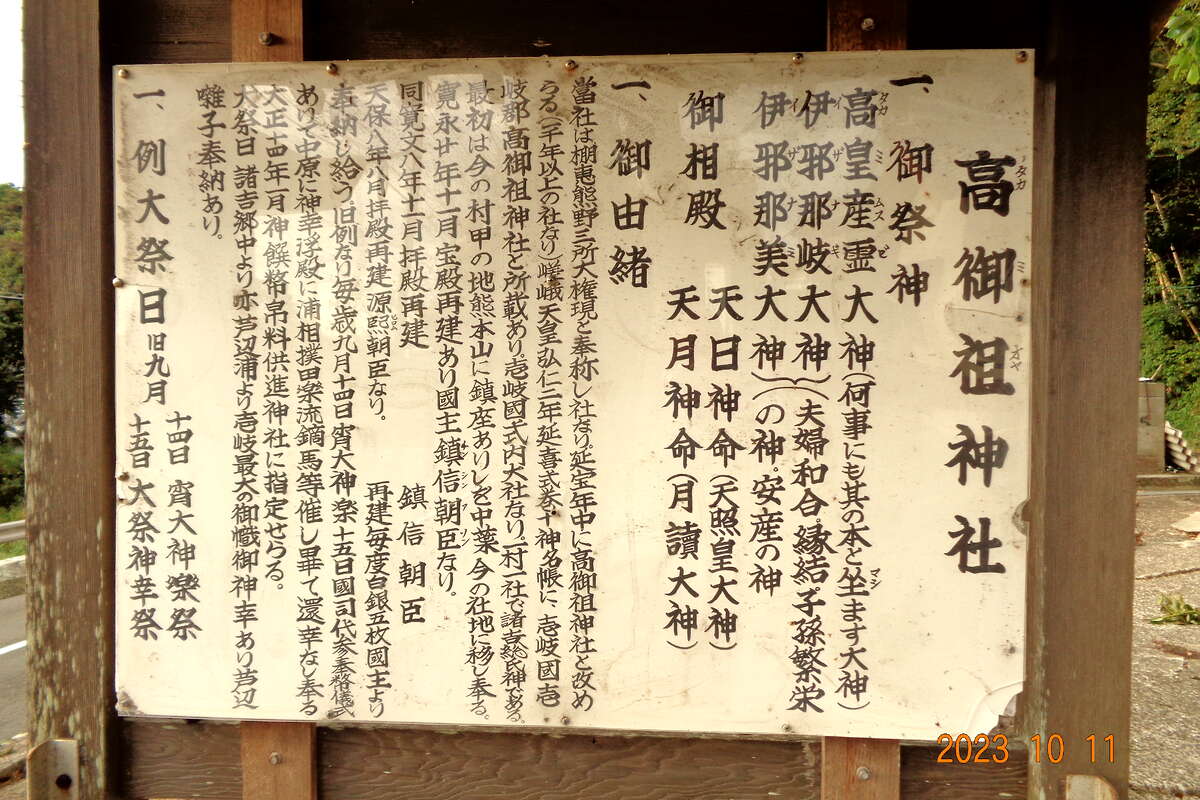 高御祖神社
タカ ミ オヤ
一、御祭神
高皇産霊大神(何事にも其の本と坐ます大神)
タカ ミ ムス ビ マシ
伊邪那岐大神
イ ザ ナ ギ
伊邪那美大神
イ ザ ナ ミ
}(夫婦和合。縁結。子孫繁栄
)の神。安産の神
御相殿
天日神命(天照皇大神)
天月神命(月讀大神)
一、御由緒
當社は棚恵熊野三所大権現と奉称し社なり。延宝年中に高御祖神社と改め
らる(千年以上の社なり)嵯峨天皇弘仁二年延喜式巻十神名帳に、壱岐國壱
岐郡高御祖神社と所載あり。壱岐國式内大社なり。村一社で諸吉総氏神である。
最初は今の村甲の地熊本山に鎮座ありしを中葉今の社地に移し奉る。
寛永廿年十一月宝殿再建あり國主鎮信朝臣なり。
同寛文八年十一月拝殿再建 鎮信朝臣
天保八年八月拝殿再建源熈朝臣なり。 再建毎度白銀五枚國主より
奉納し給う。旧例なり毎歳九月十四日宵大神楽十五日國司代参奉幣儀式
あけて中原に神幸浮殿に浦相撲田楽流鏑馬等催し畢て還幸なし奉る
大正十四年二月神饌幣帛料供進神社に指定せらる。
大祭日 諸吉郷中より亦芦辺浦より壱岐最大の御幟御神幸あり芦辺
囃子奉納あり。
一、例大祭日 旧九月
十四日 宵大神樂祭
十五日 大祭神幸祭
2023 10 11